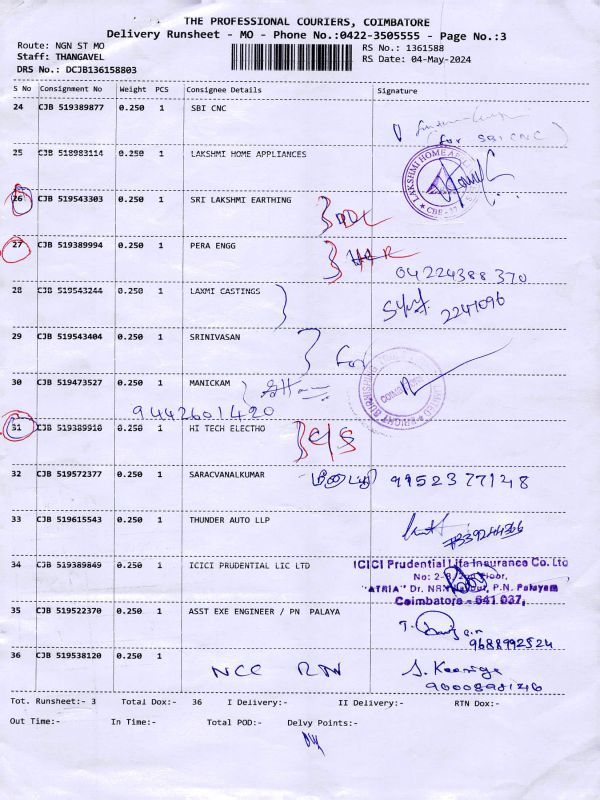 THE PROFESSIONAL COURIERS, COIMBATORE
Delivery Runsheet - MO - Phone No.:0422-3505555 - Page No.:3
Route: NGN ST MO
Staff: THANGAVEL
DRS No.: DCJB136158803
RS No.: 1361588
RS Date: 04-May-2024
S No Consignment No Weight PCS Consignee Details Signature
24 CJB 519389877 0.250 1 SBI CNC
(for SBI CNC)
25 CJB 518983114 0.250 1 LAKSHMI HOME APPLIANCES
LAKSHMI HOME
26 CJB 519543303 0.250 1 SRI LAKSHMI EARTHING
27 CJB 519389994 0.250 1 PERA ENGG
04224388370
28 CJB 519543244 0.250 1 LAXMI CASTINGS
2247096
29 CJB 519543404 0.250 1 SRINIVASAN
For
30 CJB 519473527 0.250 1 MANICKAM
9442601420
31 CJB 519389910 0.250 1 HI TECH ELECTHO
32 CJB 519572377 0.250 1 SARACVANALKUMAR 9952377148
33 CJB 519615543 0.250 1 THUNDER AUTO LLP
34 CJB 519389849 0.250 1 ICICI PRUDENTIAL LIC LTD
ICICI Prudential Life Insurance Co. Ltd
"ATRIA" Dr. P.N. Palayam
Coimbatore - 641 037.
35 CJB 519522370 0.250 1 ASST EXE ENGINEER / PN PALAYA
9688992524
36 CJB 519538120 0.250 1 NCC
Tot. Runsheet:- 3 Total Dox:- 36 I Delivery:- II Delivery:- RTN Dox:-
Out Time:- In Time:- Total POD:- Delvy Points:-